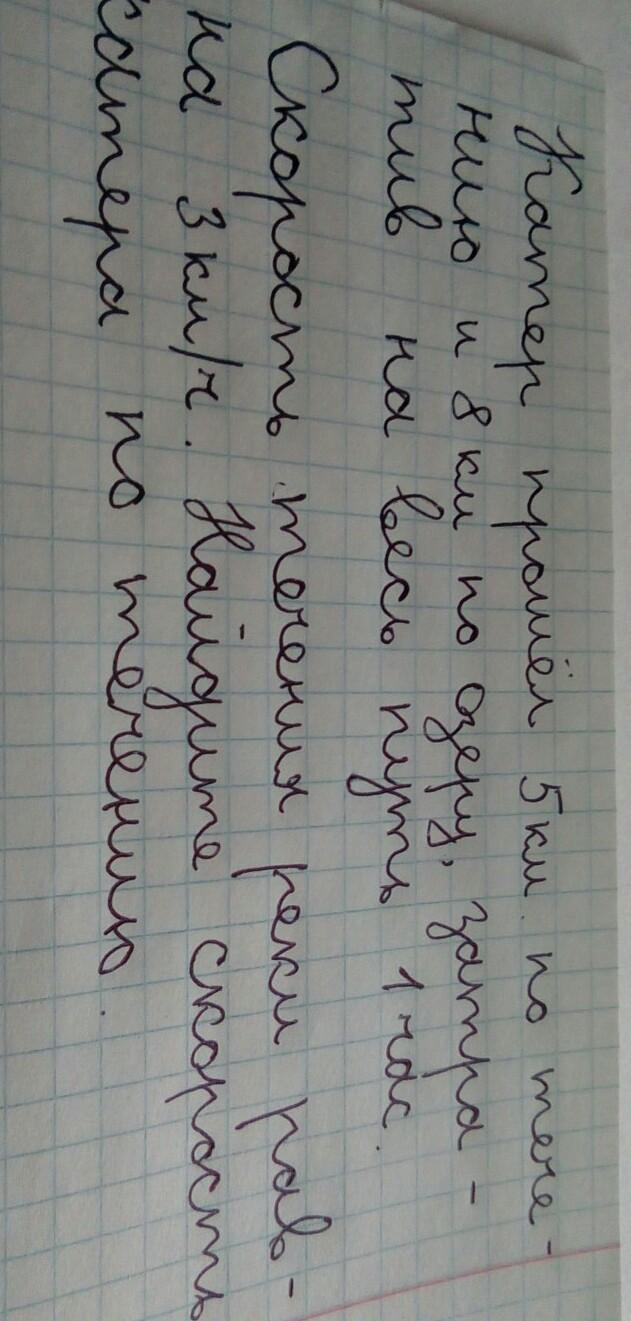 Катер прошёл 5 км по тече-
нию и 8 км по озеру, затра-
тив на весь путь 1 час.
Скорость течения реки рав-
на 3 км/ч. Найдите скорость
катера по течению.